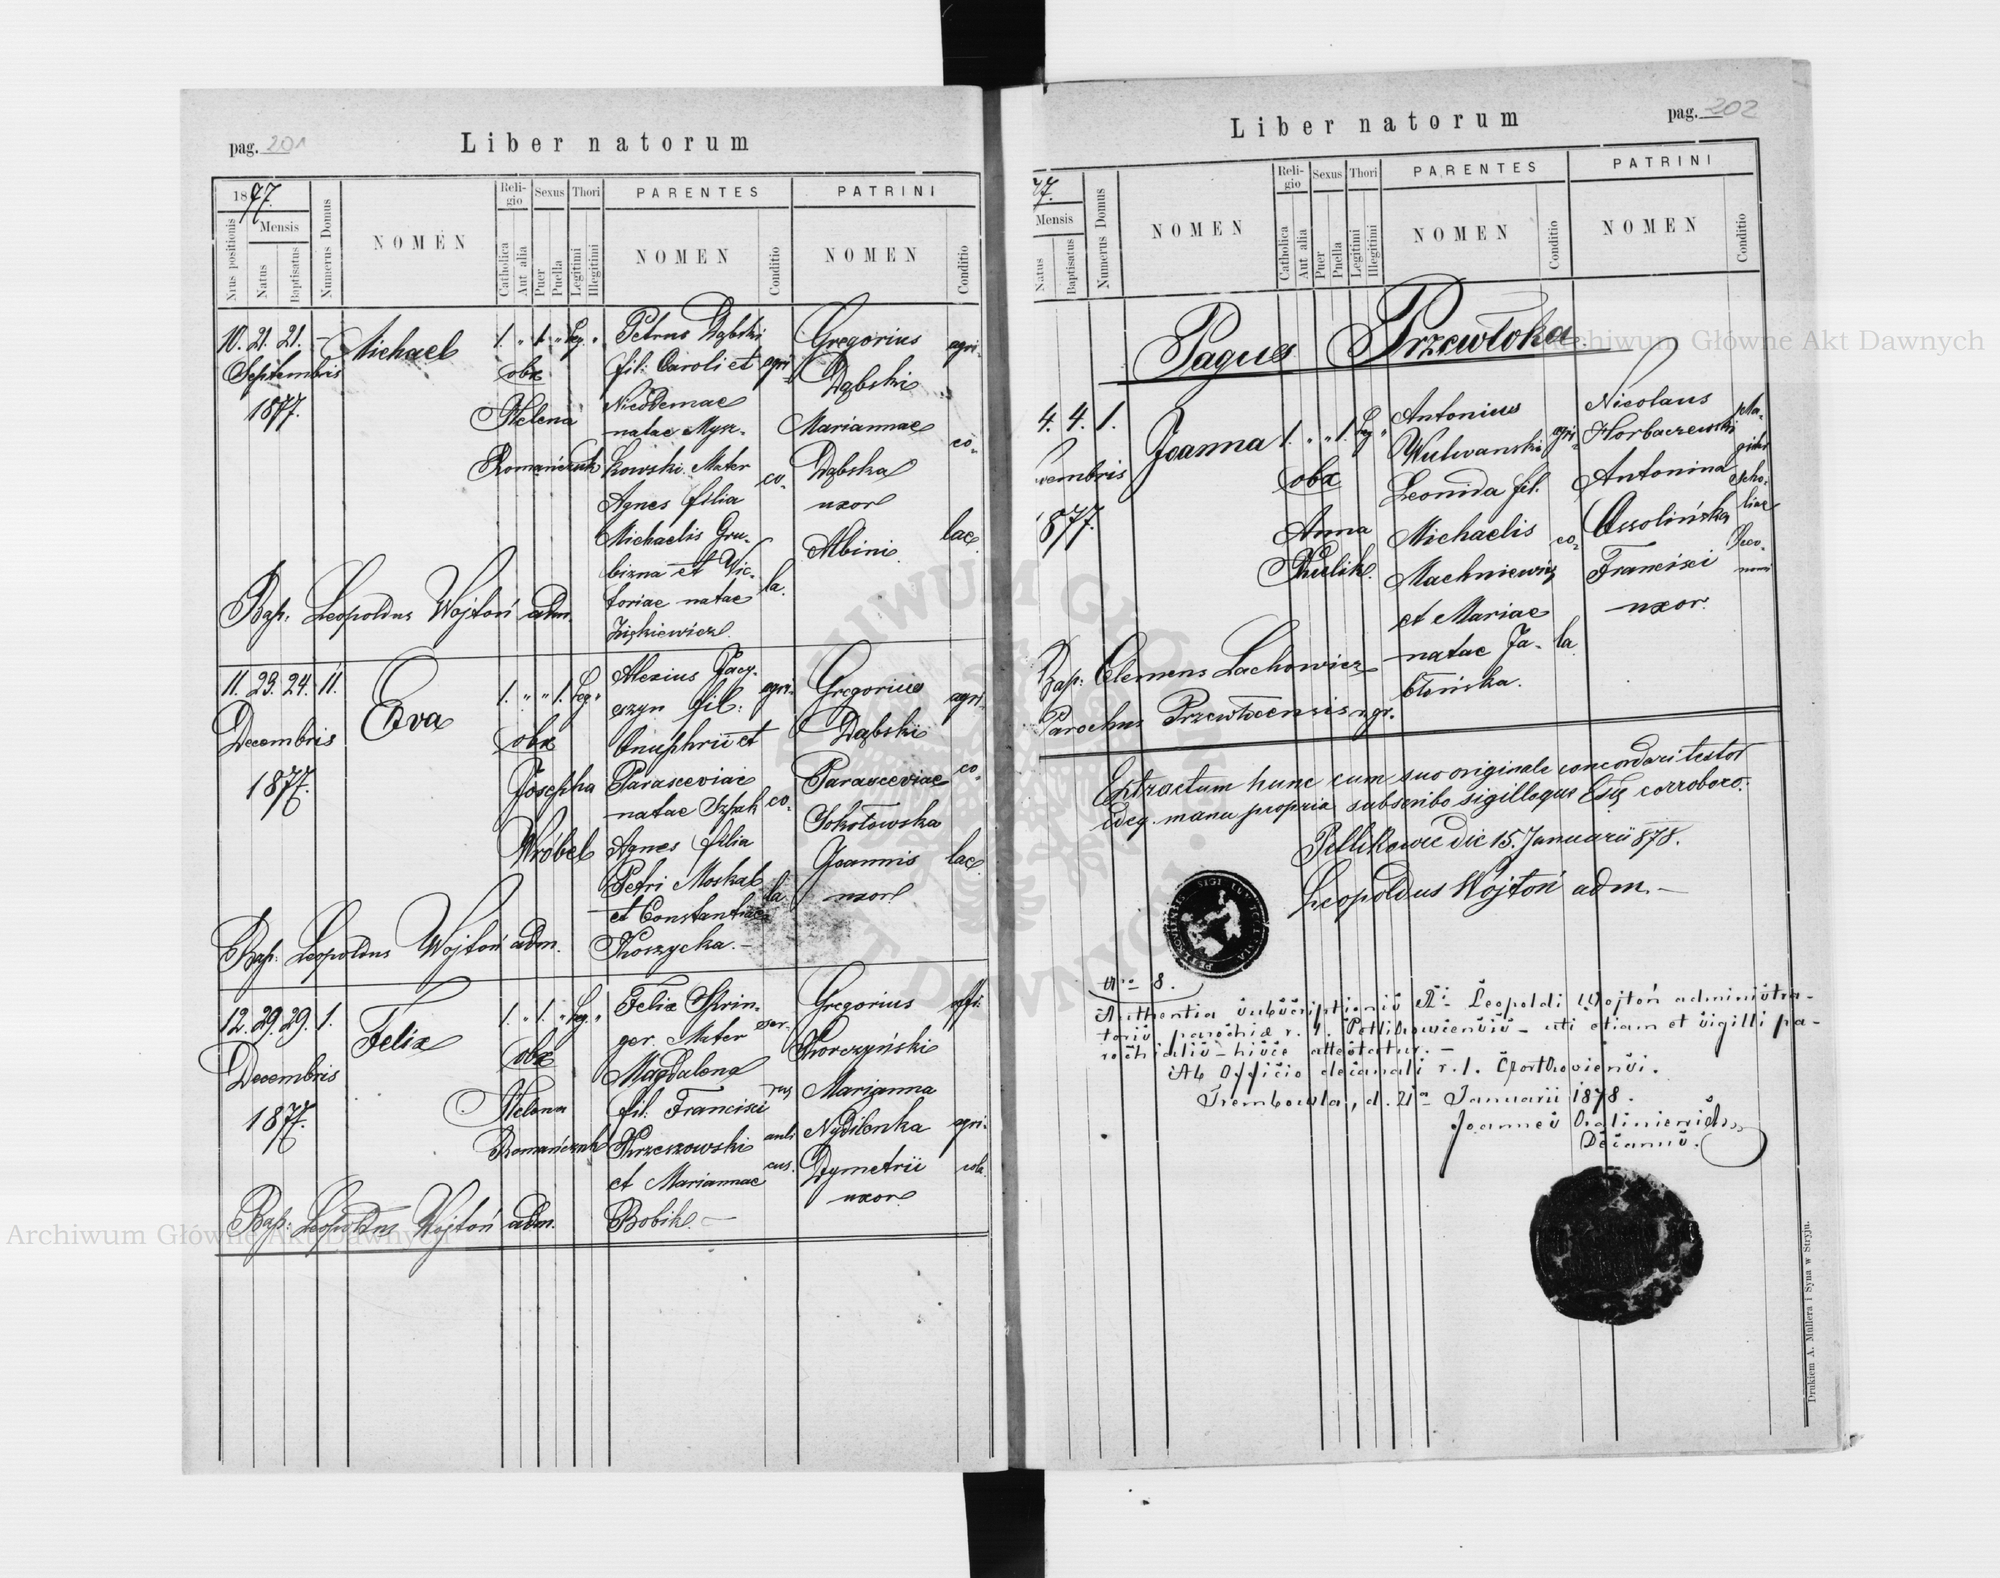 pag. 201
Liber natorum
1877.
Nrus positionis
Mensis
Natus
Baptisatus
Numerus Domus
NOMEN
Religio
Catholica
Aut alia
Sexus
Puer
Puella
Thori
Legitimi
Illegitimi
PARENTES
NOMEN
Conditio
PATRINI
NOMEN
Conditio
10. 21. 21. –
Septembris
1877.
Michael
1. " 1. " Leg. "
obx
Helena
Romańczuk
Petrus Dąbski
fil. Caroli et
Nicodemae
natae Mysz-
kowski. Mater
Agnes filia
Michaelis Gru-
bizna et Vic-
toriae natae
agri-
co-
la.
Gregorius
Dąbski
Mariannae
Dąbska
uxor
Albini
agri-
co-
lae.
Bap. Leopoldus Wojtoń adm.
11. 23. 24. 11.
Decembris
1877.
Eva
1. " " 1. Leg. "
obx
Josepha
Wróbel
Alexius Jacy-
szyn fil:
Onuphrii et
Parasceviae
natae Szpak
Agnes filia
Petri Moskal
et Constantiae
Koszycka. –
agri-
co-
la.
Gregorius
Dąbski
Parasceviae
Sokołowska
Joannis
uxor
agri-
co-
lae.
Bap. Leopoldus Wojtoń adm.
12. 29. 29. 1.
Decembris
1877.
Felix
1. " 1. " Leg. "
obx
Helena
Romańczuk
Felix Skrin-
ger. Mater
Magdalena
fil: Francisci
Krzeszowski
et Mariannae
Bobik. –
ser-
vus
auli-
cus.
Gregorius
Korczyński
Marianna
Dymetrii
uxor
agri-
cola
Bap: Leopoldus Wojtoń adm.
pag. 202
Liber natorum
77.
Mensis
Natus
Baptisatus
Numerus Domus
NOMEN
Religio
Catholica
Aut alia
Sexus
Puer
Puella
Thori
Legitimi
Illegitimi
PARENTES
NOMEN
Conditio
PATRINI
NOMEN
Conditio
Pagus Przewłoka
4. 4. 1.
vembris
1877.
Joanna
1. " " 1. Leg "
obx
Anna
Kulik.
Antonius
Wulwanski
Leonida fil.
Michaelis
Machniewicz
et Mariae
natae Ja-
błońska.
agri-
co-
la
Nicolaus
Horbaczewski
Antonina
Ossolińska
Francisci
uxor.
Ma-
gister
scho-
lae
Oeco-
nomi
Bap: Clemens Lachowicz
Parochus Przewłocensis r. gr.
Extractum hunc cum suo originale concordari testor
idcq. manu propria subscribo sigilloque Esię corroboro.
Petlikowce die 15. Januarii 878.
Leopoldus Wojtoń adm. –
Nro 8.
Authentia subscriptionis Ad. Leopoldi Wojtoń administra-
toris parochiae r. l. Petlikowiensis – uti etiam et sigilli pa-
rochialis – hisce attestatur. –
Ab Officio decanali r. l. Czortkoviensi.
Trembowla, d. 21a Januarii 1878.
Decanus.
Drukiem A. Müllera i Syna w Stryju.
Archiwum Główne Akt Dawnych
Archiwum Główne Akt Dawnych